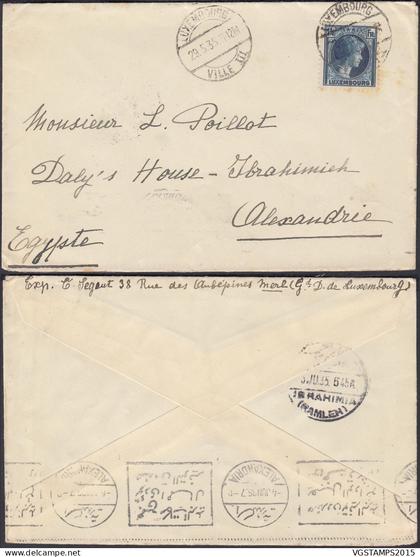 LUXEMBOURG
29.5.35. 12H
VILLE III
LUXEMBOURG
LUXEMBOURG
Monsieur L. Poillot
Daly's House - Ibrahimieh
Alexandrie
Egypte
Exp. E. Segaut 38 Rue des Aubépines Merl (Gd D. de Luxembourg)
JU.35. 6 45A
IBRAHIMIA
(RAMLEH)
ALEXANDRIA
ALEXANDRIA
©VGSTAMPS2015